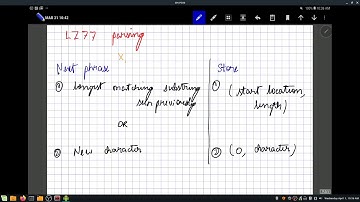 MAR 31 10:42
LZ77 parsing
x
Next phrase
Store
① longest matching substring
seen previously
① (start location,
length)
OR
② New character
② (0, character)